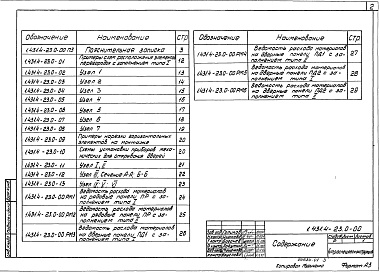 2
Обозначение Наименование Стр
1.431.4-23.0-00 ПЗ Пояснительная записка 3
1.431.4-23.0-01 Примеры схем расположения элементов перегородок с заполнением типа I 12
1.431.4-23.0-02 Узел 1 13
1.431.4-23.0-03 Узел 2 14
1.431.4-23.0-04 Узел 3 15
1.431.4-23.0-05 Узел 4 16
1.431.4-23.0-06 Узел 5 17
1.431.4-23.0-07 Узел 6 18
1.431.4-23.0-08 Узел 7 19
1.431.4-23.0-09 Примеры нарезки горизонтальных элементов на монтаже 20
1.431.4-23.0-10 Схемы установки приборов механических для открывания дверей 20
1.431.4-23.0-11 Узел I, II 21
1.431.4-23.0-12 Узел III, Сечение А-А, Б-Б 22
1.431.4-23.0-13 Узел IV, V, VI 23
1.431.4-23.0-00 РМ1 Ведомость расхода материалов на рядовые панели ПР с заполнением типа I 24
1.431.4-23.0-00 РМ2 Ведомость расхода материалов на рядовые панели ПР с заполнением типа II 25
1.431.4-23.0-00 РМ3 Ведомость расхода материалов на дверные панели ПД1 с заполнением типа I 26
Обозначение Наименование Стр
1.431.4-23.0-00 РМ4 Ведомость расхода материалов на дверные панели ПД1 с заполнением типа II 27
1.431.4-23.0-00 РМ5 Ведомость расхода материалов на дверные панели ПД2 с заполнением типа I 28
1.431.4-23.0-00 РМ6 Ведомость расхода материалов на дверные панели ПД2 с заполнением типа II 29
1.431.4-23.0-00
Содержание
Копировал
Формат А3